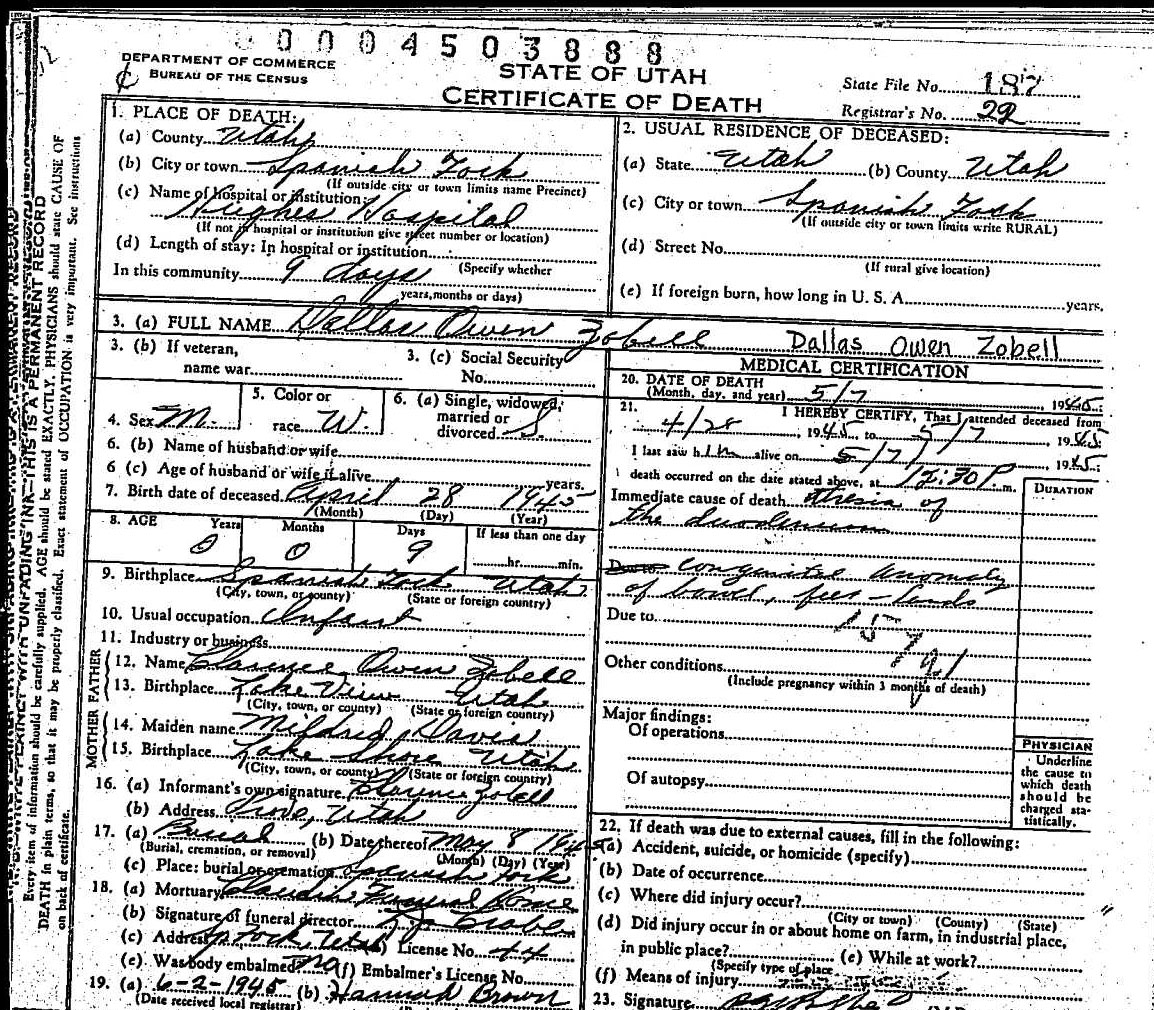 0004503888
DEPARTMENT OF COMMERCE
BUREAU OF THE CENSUS
STATE OF UTAH
CERTIFICATE OF DEATH
State File No. 187
Registrar's No. 22
1. PLACE OF DEATH:
(a) County Utah
(b) City or town Spanish Fork
(If outside city or town limits name Precinct)
(c) Name of hospital or institution:
Hughes Hospital
(If not in hospital or institution give street number or location)
(d) Length of stay: In hospital or institution
(Specify whether
In this community 9 days
years, months or days)
2. USUAL RESIDENCE OF DECEASED:
(a) State Utah (b) County Utah
(c) City or town Spanish Fork
(If outside city or town limits write RURAL)
(d) Street No.
(If rural give location)
(e) If foreign born, how long in U. S. A. years.
3. (a) FULL NAME Dallas Owen Zobell Dallas Owen Zobell
3. (b) If veteran,
name war
3. (c) Social Security
No.
4. Sex M.
5. Color or
race W.
6. (a) Single, widowed,
married or
divorced S.
6. (b) Name of husband or wife
6 (c) Age of husband or wife if alive years.
7. Birth date of deceased April 28 1945
(Month) (Day) (Year)
8. AGE Years Months Days If less than one day
0 0 9 hr. min.
9. Birthplace Spanish Fork Utah
(City, town, or county) (State or foreign country)
10. Usual occupation Infant
11. Industry or business
FATHER
12. Name Clarence Owen Zobell
13. Birthplace Lake View Utah
(City, town, or county) (State or foreign country)
MOTHER
14. Maiden name Mildred Davis
15. Birthplace Lake Shore Utah
(City, town, or county) (State or foreign country)
16. (a) Informant's own signature Clarence Zobell
(b) Address Provo, Utah
17. (a) Burial (b) Date thereof May 8 1945
(Burial, cremation, or removal) (Month) (Day) (Year)
(c) Place: burial or cremation Spanish Fork
18. (a) Mortuary Claudin Funeral Home
(b) Signature of funeral director
(c) Address Sp Fork, Utah License No. 44
(e) Was body embalmed? no (f) Embalmer's License No.
19. (a) 6-2-1945 (b) Hannah Brown
(Date received local registrar)
MEDICAL CERTIFICATION
20. DATE OF DEATH
(Month, day, and year) 5/7, 1945
21. I HEREBY CERTIFY, That I attended deceased from
4/28, 1945, to 5/7, 1945
I last saw him alive on 5/7, 1945
death occurred on the date stated above, at 12:30 P. m.
DURATION
Immediate cause of death atresia of
the duodenum
congenital anomaly
of bowel,
Due to
157 g1
Other conditions
(Include pregnancy within 3 months of death)
Major findings:
Of operations
Of autopsy
PHYSICIAN
Underline
the cause to
which death
should be
charged sta-
tistically.
22. If death was due to external causes, fill in the following:
(a) Accident, suicide, or homicide (specify)
(b) Date of occurrence
(c) Where did injury occur?
(City or town) (County) (State)
(d) Did injury occur in or about home on farm, in industrial place,
in public place? (e) While at work?
(Specify type of place
(f) Means of injury
23. Signature
THIS IS A PERMANENT RECORD
Every item of information should be carefully supplied. AGE should be stated EXACTLY. PHYSICIANS should state CAUSE OF
DEATH in plain terms, so that it may be properly classified. Exact statement of OCCUPATION is very important. See instructions
on back of certificate.